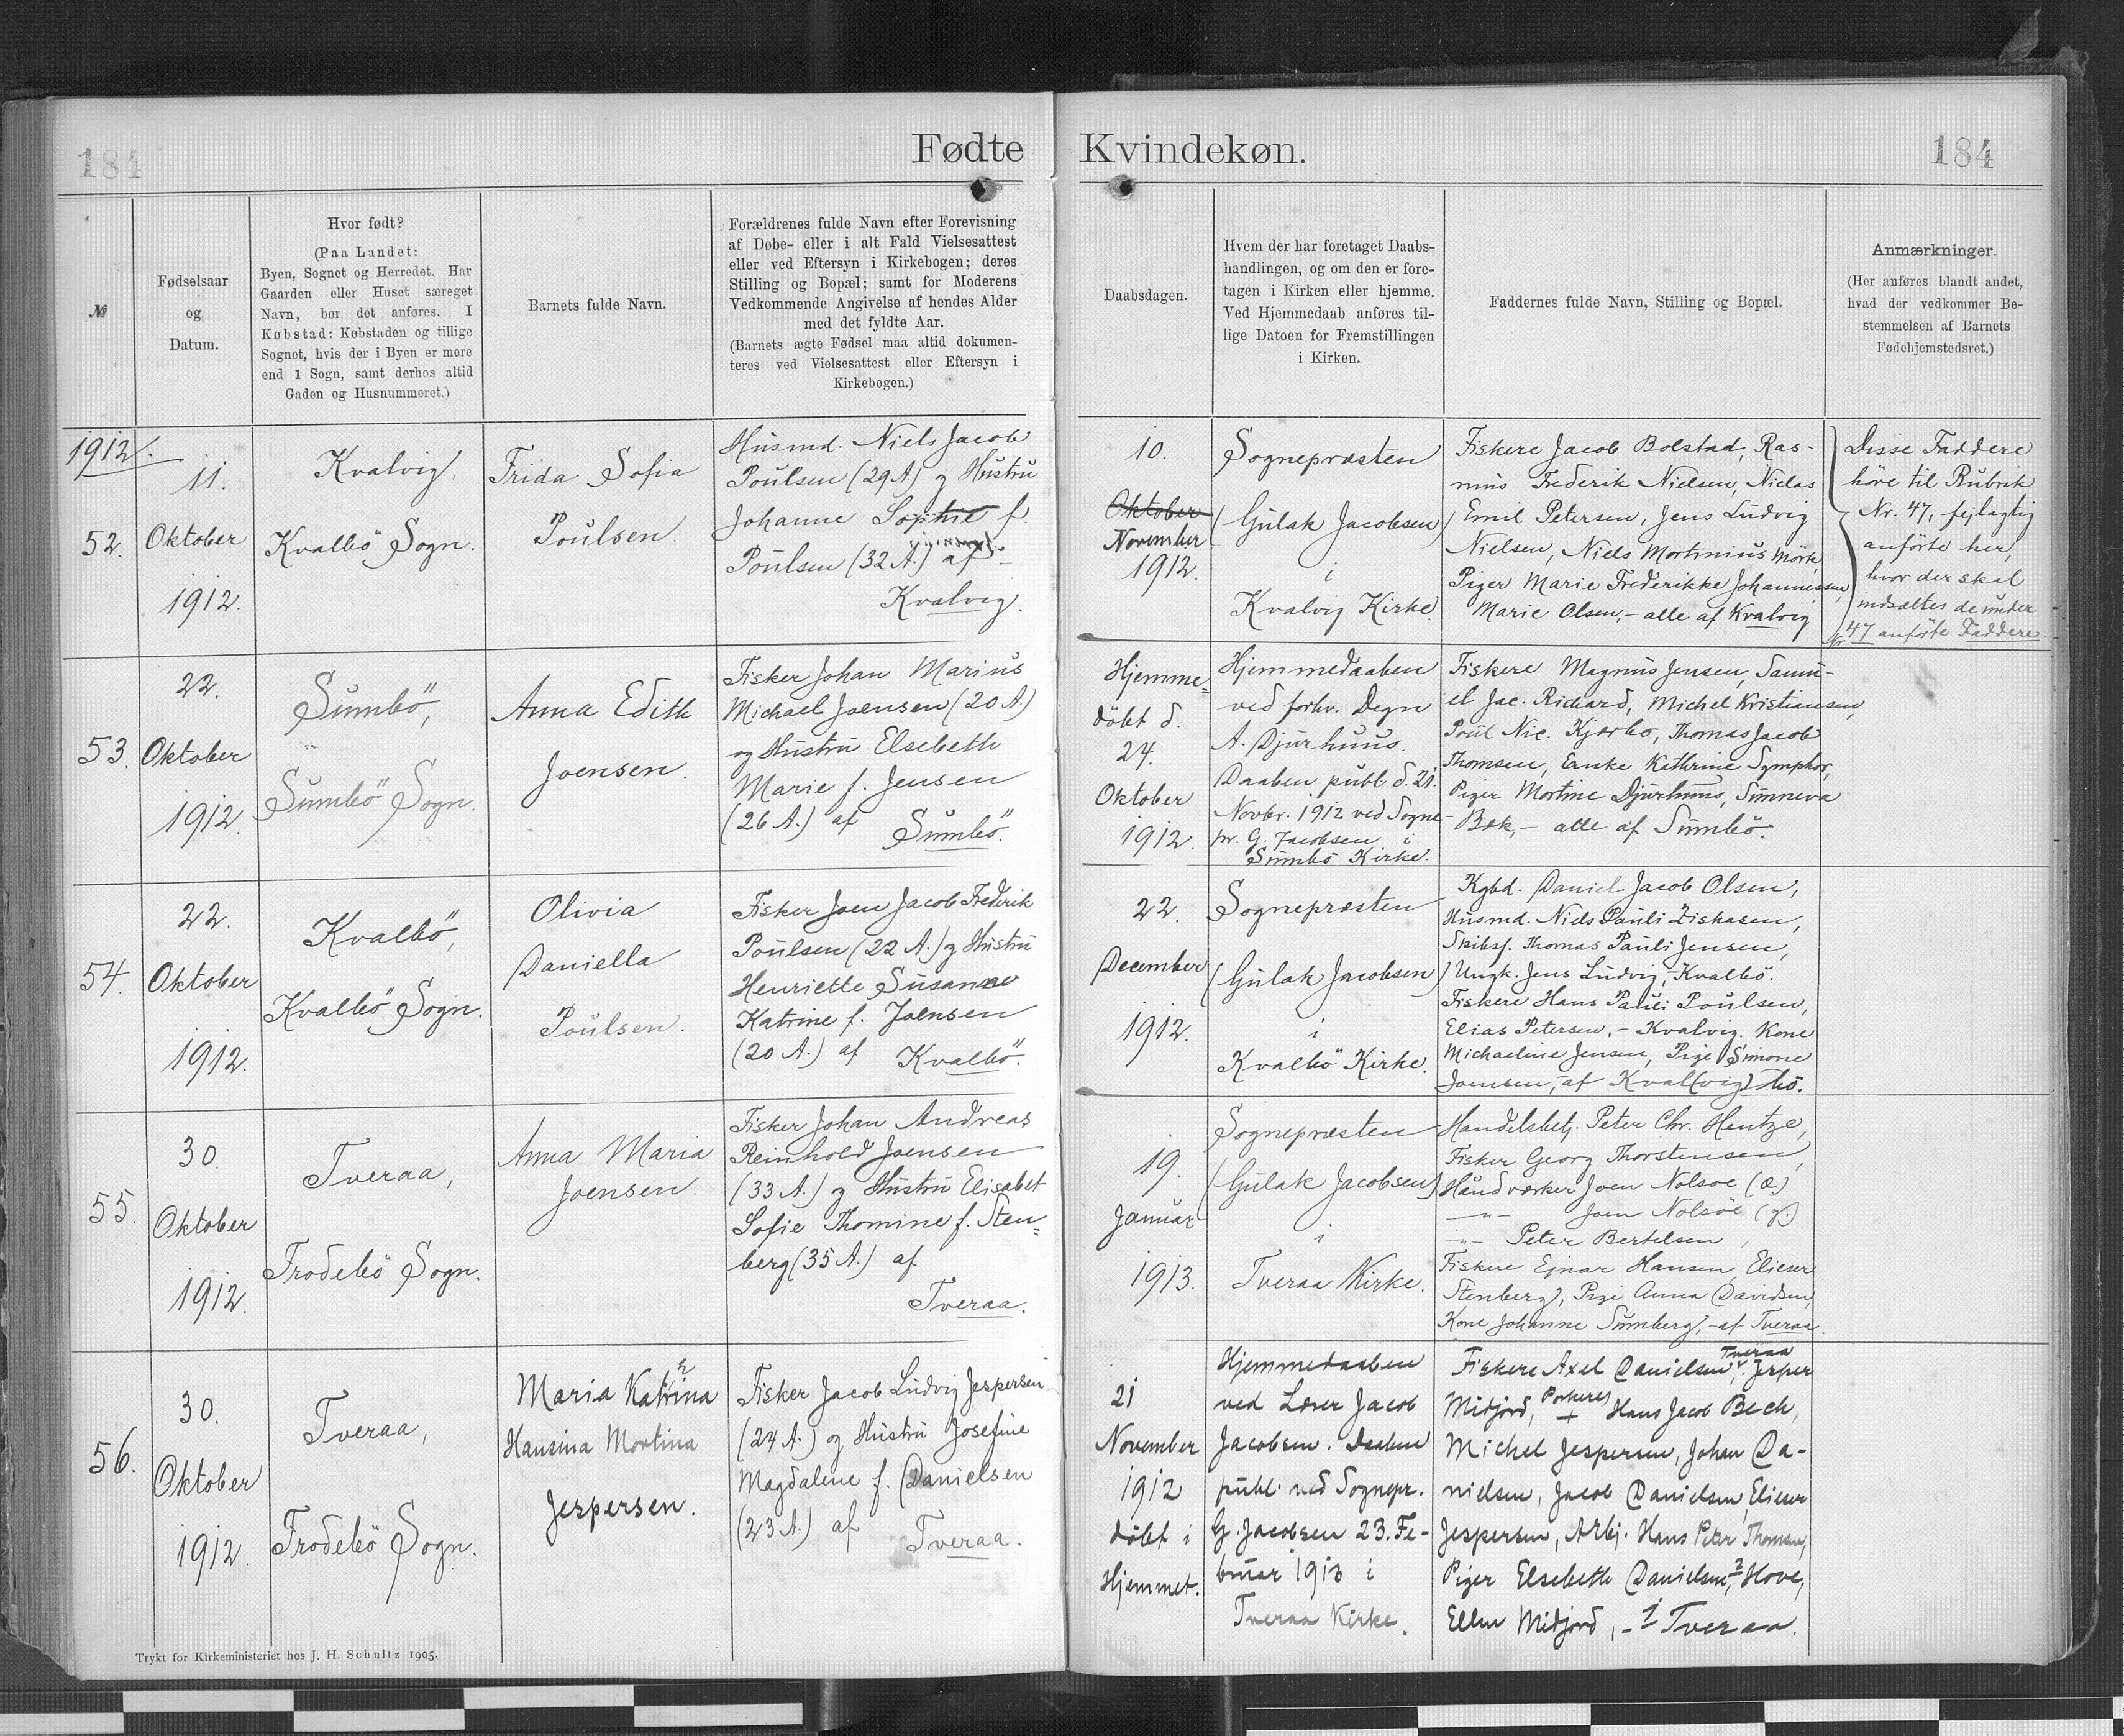 184
Fødte
Kvindekøn.
184
№
Fødselsaar
og
Datum.
Hvor født?
(Paa Landet:
Byen, Sognet og Herredet. Har
Gaarden eller Huset særeget
Navn, bør det anføres. I
Købstad: Købstaden og tillige
Sognet, hvis der i Byen er mere
end 1 Sogn, samt derhos altid
Gaden og Husnummeret.)
Barnets fulde Navn.
Forældrenes fulde Navn efter Forevisning
af Døbe- eller i alt Fald Vielsesattest
eller ved Eftersyn i Kirkebogen; deres
Stilling og Bopæl; samt for Moderens
Vedkommende Angivelse af hendes Alder
med det fyldte Aar.
(Barnets ægte Fødsel maa altid dokumen-
teres ved Vielsesattest eller Eftersyn i
Kirkebogen.)
Daabsdagen.
Hvem der har foretaget Daabs-
handlingen, og om den er fore-
tagen i Kirken eller hjemme.
Ved Hjemmedaab anføres til-
lige Datoen for Fremstillingen
i Kirken.
Faddernes fulde Navn, Stilling og Bopæl.
Anmærkninger.
(Her anføres blandt andet,
hvad der vedkommer Be-
stemmelsen af Barnets
Fødehjemstedsret.)
1912.
52.
11.
Oktober
1912.
Kvalvig,
Kvalbö Sogn.
Frida Sofia
Poulsen.
Husmd. Niels Jacob
Poulsen (29 A.) og Hustru
Johanne Sophie f.
Poulsen (32 A.) af
Kvalvig.
10.
Oktober
November
1912.
Sognepræsten
(Gulak Jacobsen)
i
Kvalvig Kirke.
Fiskere Jacob Bolstad, Ras-
mus Frederik Nielsen, Niclas
Emil Petersen, Jens Ludvig
Nielsen, Niels Mortinius Mörk,
Piger Marie Frederikke Johannessen,
Marie Olsen, - alle af Kvalvig
Disse Faddere
höre til Rubrik
Nr. 47, fejlagtig
anförte her,
hvor der skal
indsættes de under
Nr. 47 anförte Faddere.
53.
22.
Oktober
1912.
Sumbö,
Sumbö Sogn.
Anna Edith
Joensen.
Fisker Johan Marius
Michael Joensen (20 A.)
og Hustru Elsebeth
Marie f. Jensen
(26 A.) af Sumbö.
Hjemme=
döbt d.
24.
Oktober
1912.
Hjemmedaaben
ved forhv. Degn
A. Djurhuus.
Daaben publ d. 21.
Novbr. 1912 ved Sogne-
pr. G. Jacobsen i
Sumbö Kirke.
Fiskere Magnus Jensen, Samu-
el Jac. Richard, Michel Kristiansen,
Poul Nic. Kjærbo, Thomas Jacob
Thomsen, Enke Kathrine Symphor,
Piger Mortine Djurhuus, Sunneva
Bæk, - alle af Sumbö.
54.
22.
Oktober
1912.
Kvalbö,
Kvalbö Sogn.
Olivia
Daniella
Poulsen.
Fisker Joen Jacob Frederik
Poulsen (22 A.) og Hustru
Henriette Susanne
Katrine f. Joensen
(20 A.) af Kvalbö.
22.
December
1912.
Sognepræsten
(Gulak Jacobsen)
i
Kvalbö Kirke.
Kgbd. Daniel Jacob Olsen,
Husmd. Niels Pauli Ziskasen,
Skibsf. Thomas Pauli Jensen,
Ungk. Jens Ludvig, - Kvalbö.
Fiskere Hans Pauli Poulsen,
Elias Petersen, - Kvalvig. Kone
Michaeline Jensen, Pige Simone
Joensen, - af Kval(vig) bö.
55.
30.
Oktober
1912.
Tveraa,
Frodebö Sogn.
Anna Maria
Joensen.
Fisker Johan Andreas
Reinhold Joensen
(33 A.) og Hustru Elisabet
Sofie Thomine f. Sten=
berg (35 A.) af
Tveraa.
19.
Januar
1913.
Sognepræsten
(Gulak Jacobsen)
i
Tveraa Kirke.
Handelsbetj. Peter Chr. Hentze,
Fisker Georg Thorstensen,
Haandværker Joen Nolsoe (æ.)
—"— Joen Nolsöe (y.)
—"— Peter Bertelsen,
Fiskere Ejnar Hansen, Elieser
Stenberg, Pige Anna Davidsen,
Kone Johanne Sumberg, - af Tveraa.
56.
30.
Oktober
1912.
Tveraa,
Frodebö Sogn.
Maria Katrina
Hansina Mortina
Jespersen.
Fisker Jacob Ludvig Jespersen
(24 A.) og Hustru Josefine
Magdalene f. Danielsen
(23 A.) af Tveraa.
21
November
1912
döbt i
Hjemmet.
Hjemmedaaben
ved Lærer Jacob
Jacobsen. Daaben
publ. ved Sognepr.
G. Jacobsen 23. Fe-
bruar 1913 i
Tveraa Kirke.
Fiskere Axel Danielsen, Tveraa, Jesper
Mitjörd, Porkeres + Hans Jacob Bech,
Michel Jespersen, Johan Da-
nielsen, Jacob Danielsen, Elieser
Jespersen, Arbj. Hans Peter Thomsen,
Piger Elsebeth Danielsen, Hove,
Ellen Mitjörd, - Tveraa.
Trykt for Kirkeministeriet hos J. H. Schultz 1905.